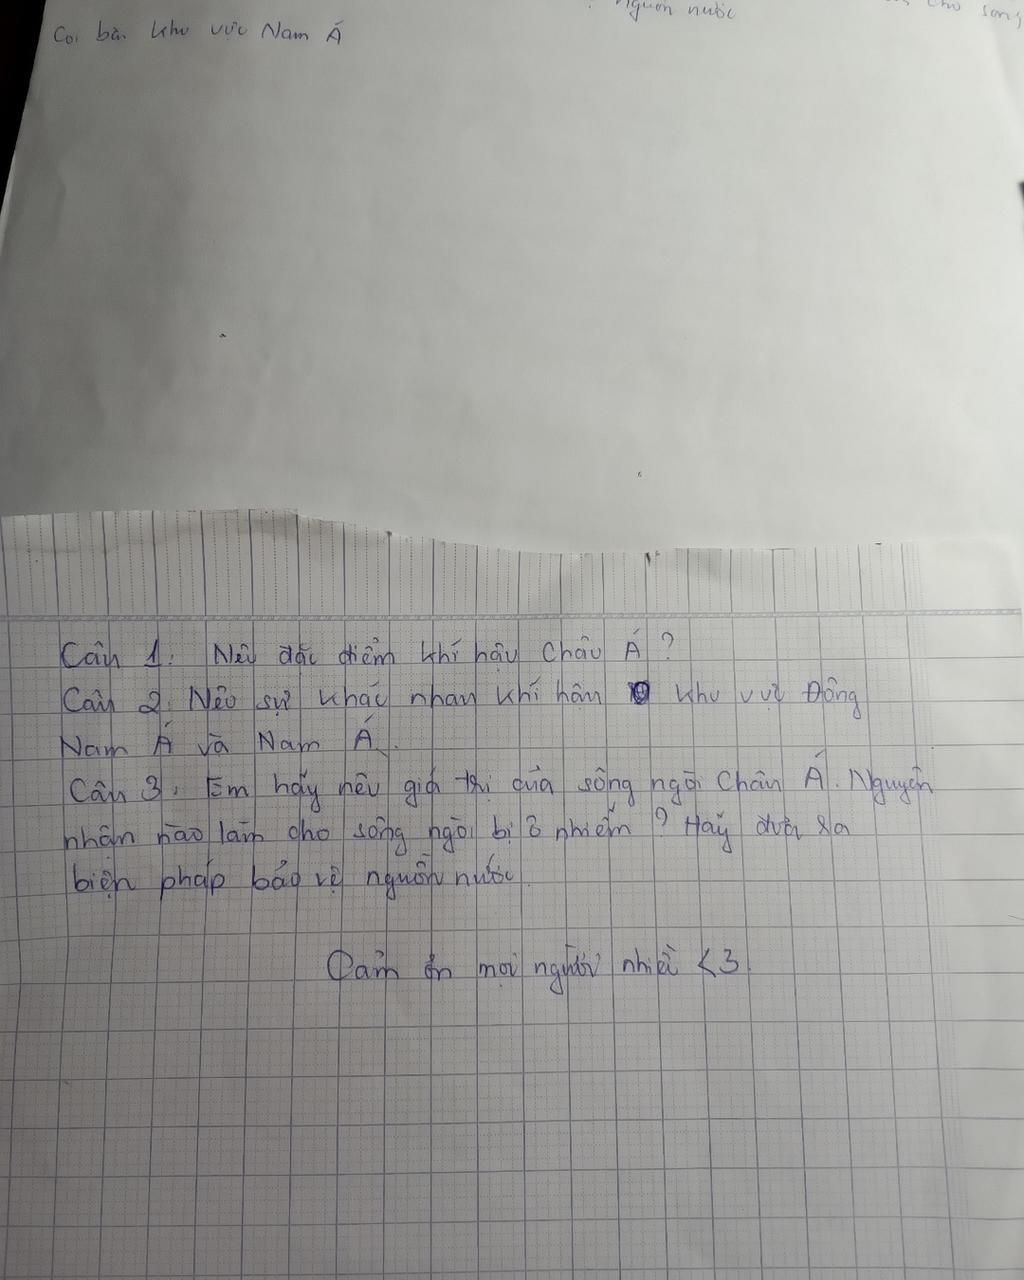 Coi bài khu vực Nam Á
nguồn nước
cho sông
Câu 1: Nêu đặc điểm khí hậu Châu Á?
Câu 2: Nêu sự khác nhau khí hậu khu vực Đông
Nam Á và Nam Á.
Câu 3: Em hãy nêu giá trị của sông ngòi Châu Á. Nguyên
nhân nào làm cho sông ngòi bị ô nhiễm? Hãy đưa ra
biện pháp bảo vệ nguồn nước
Cảm ơn mọi người nhiều <3